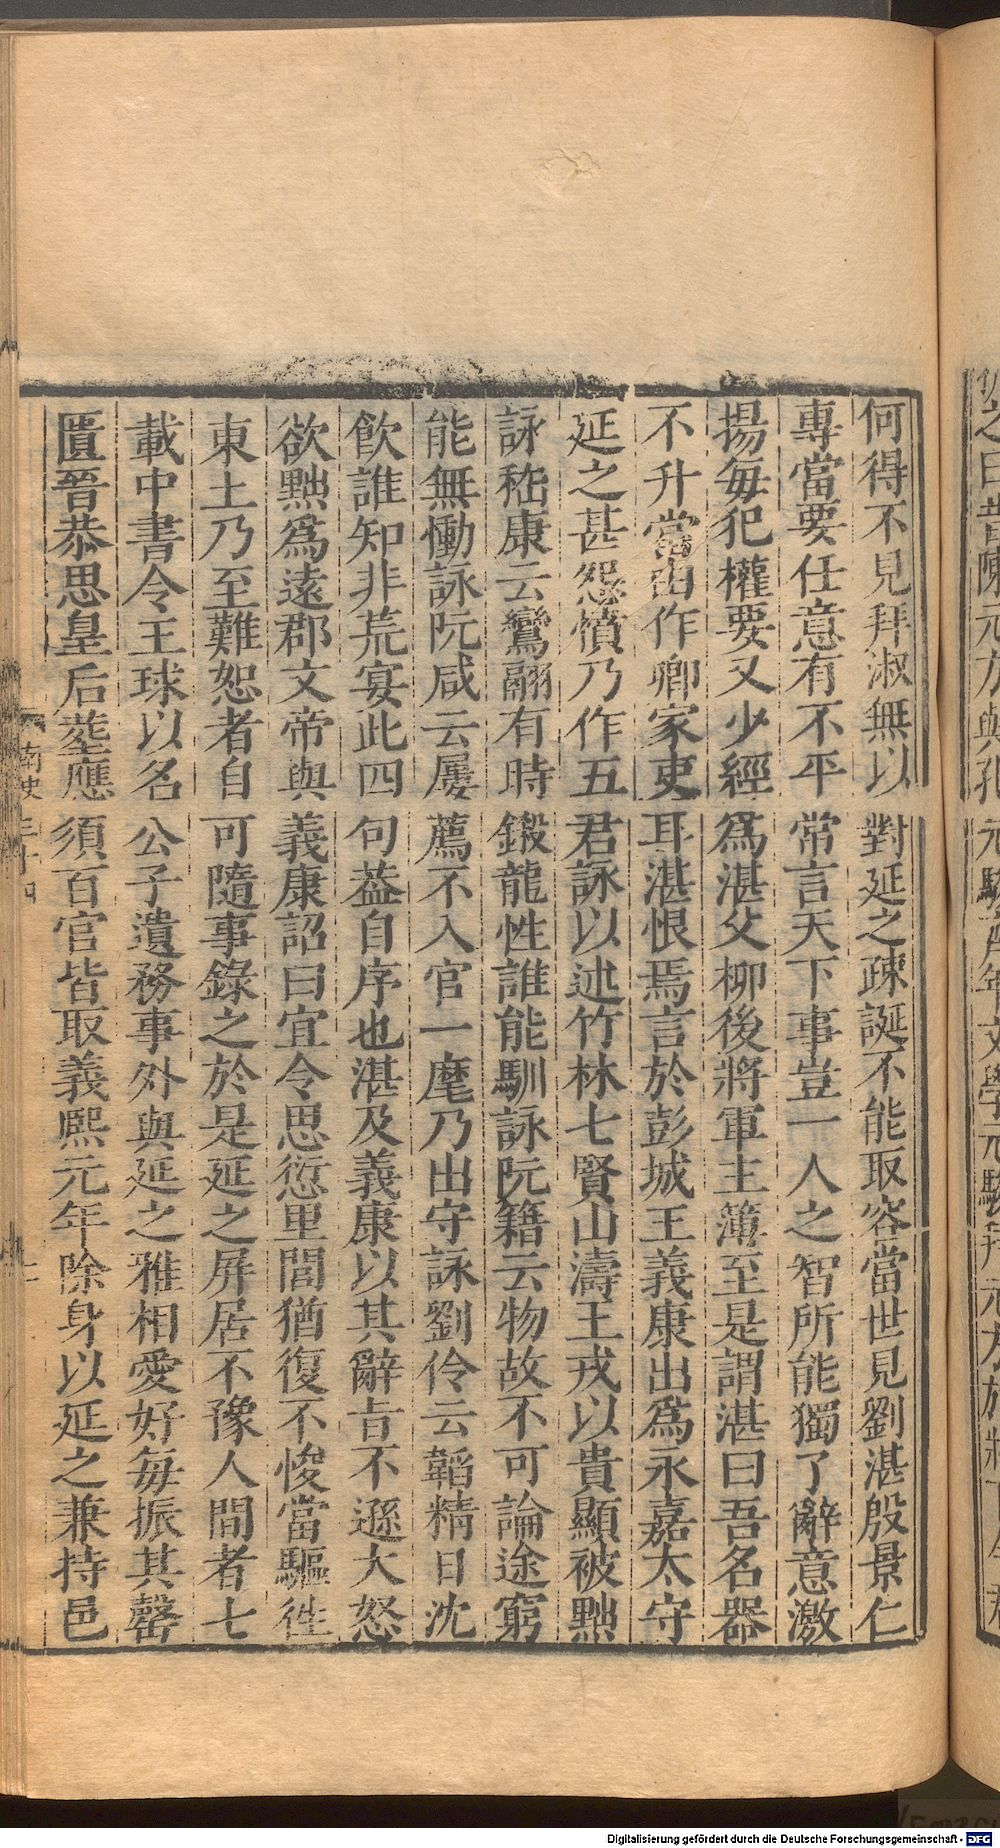 何得不見拜淑無以對延之疎誕不能取容當世見劉湛殷景仁
專當要任意有不平常言天下事豈一人之智所能獨了辭意激
揚每犯權要又少經爲湛父柳後將軍主簿至是謂湛曰吾名器
不升當由作卿家吏耳湛恨焉言於彭城王義康出爲永嘉太守
延之甚怨憤乃作五君詠以述竹林七賢山濤王戎以貴顯被黜
詠嵇康云鸞翮有時鎩龍性誰能馴詠阮籍云物故不可論途窮
能無慟詠阮咸云屢薦不入官一麾乃出守詠劉伶云韜精日沈
飲誰知非荒宴此四句葢自序也湛及義康以其辭㫖不遜大怒
欲黜爲遠郡文帝與義康詔曰宜令思愆里閭猶復不悛當驅徃
東土乃至難恕者自可隨事錄之於是延之屏居不豫人間者七
載中書令王球以名公子遺務事外與延之雅相愛好每振其罄
匱晉恭思皇后塟應須百官皆取義熙元年除身以延之兼持邑
南史三十四
Digitalisierung gefördert durch die Deutsche Forschungsgemeinschaft - DFG